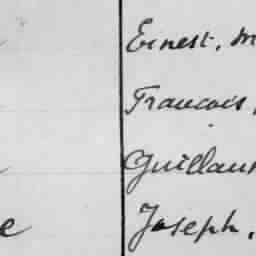 Ernest, M
Francois,
Guillau
e Joseph,